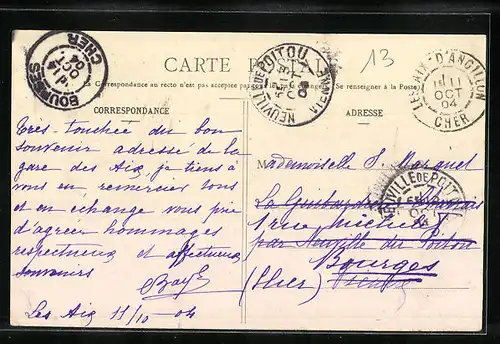 13
CARTE POSTALE
La Correspondance au recto n'est pas acceptée par
(Se renseigner à la Poste)
CORRESPONDANCE
ADRESSE
BOURGES
OCT
04
CHER
NEUVILLE DE POITOU
OCT
04
VIENNE
LES AIX D'ANGILLON
11
OCT
04
CHER
NEUVILLE DE POIT
Très touchée du bon
souvenir adressé de la
gare des Aix, je tiens à
vous en remercier tous
et en échange vous prie
d'agréer hommages
respectueux et affectueux
souvenirs
Les Aix 11/10 - 04
Mademoiselle
La
1 rue
par Neuville du Poitou
Bourges
(Cher) Vienne